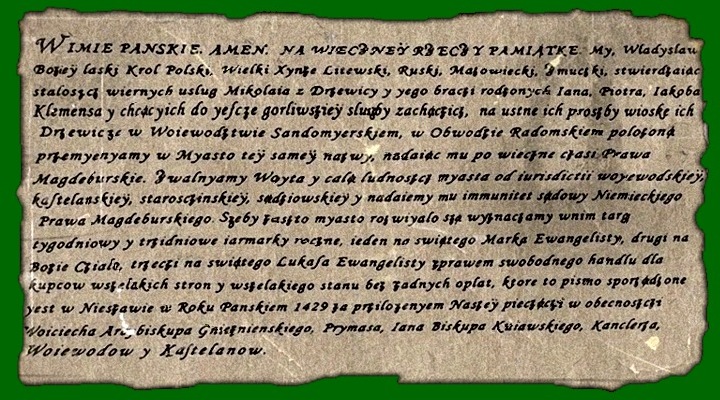 WIMIE PANSKIE. AMEN. NA WIECZNEY RZECZY PAMIĄTKE. My, Wladyslaw
Bozey laski Krol Polski, Wielki Xynze Litewski, Ruski, Mazowiecki, Zmuczki, stwierdzaiąc
stalosczi wiernych uslug Mikolaia z Drzewicy y yego braczi rodzonych Iana, Piotra, Iakoba
Klemensa y chcącyich do yeszcze gorliwsziey sluzby zachęcicz, na ustne ich prosby wioskę ich
Drzewicze w Woiewodztwie Sandomyerskiem, w Obwodzie Radomskiem polozoną
przemyenyamy w Myasto tey samey nazwy, nadaiąc mu po wieczne czasi Prawa
Magdeburskie. Zwalnyamy Woyta y calą ludnoscz myasta od iurisdictii woyewodskiey,
kasztelanskiey, staroscinskiey, sądziowskiey y nadaiemy mu immunitet sądowy Niemieckiego
Prawa Magdeburskiego. Szeby zaszto myasto rozwiyalo się wyznaczamy wnim targ
tygodniowy y trzidniowe iarmarky roczne, ieden na swiętego Marka Ewangelisty, drugi na
Bozie Czialo, trzeczi na swiętego Lukasza Ewangelisty zprawem swobodnego handlu dla
kupcow wszelakich stron y wszelakiego stanu bez zadnych oplat, ktore to pismo sporządzone
yest w Nieszawie w Roku Panskiem 1429 za przilozenyem Naszey pieczęczi w obecnosczi
Woiciecha Arcybiskupa Gnieznienskiego, Prymasa, Iana Biskupa Kuiawskiego, Kanclerza,
Woiewodow y Kasztelanow.